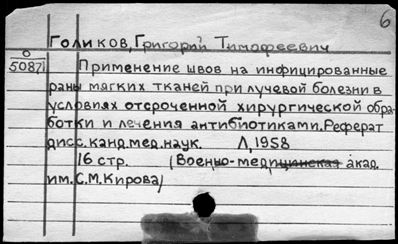 6
Голиков, Григорий Тимофеевич
0
50871
Применение швов на инфицированные
раны мягких тканей при лучевой болезни в
условиях отсроченной хирургической обра-
ботки и лечения антибиотиками. Реферат
дисс. канд. мед. наук. Л, 1958
16 стр. (Военно-медицинская акад.
им. С.М. Кирова)